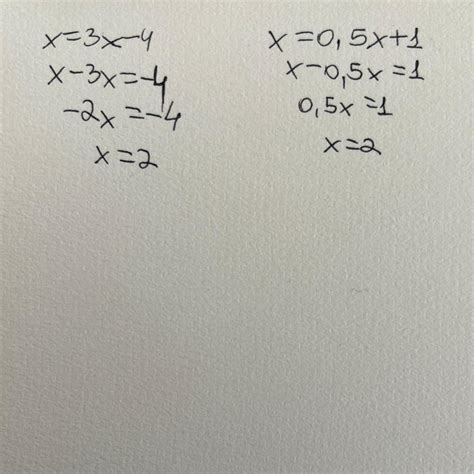 x=3x-4
x-3x=-4
-2x=-4
x=2
x=0,5x+1
x-0,5x=1
0,5x=1
x=2